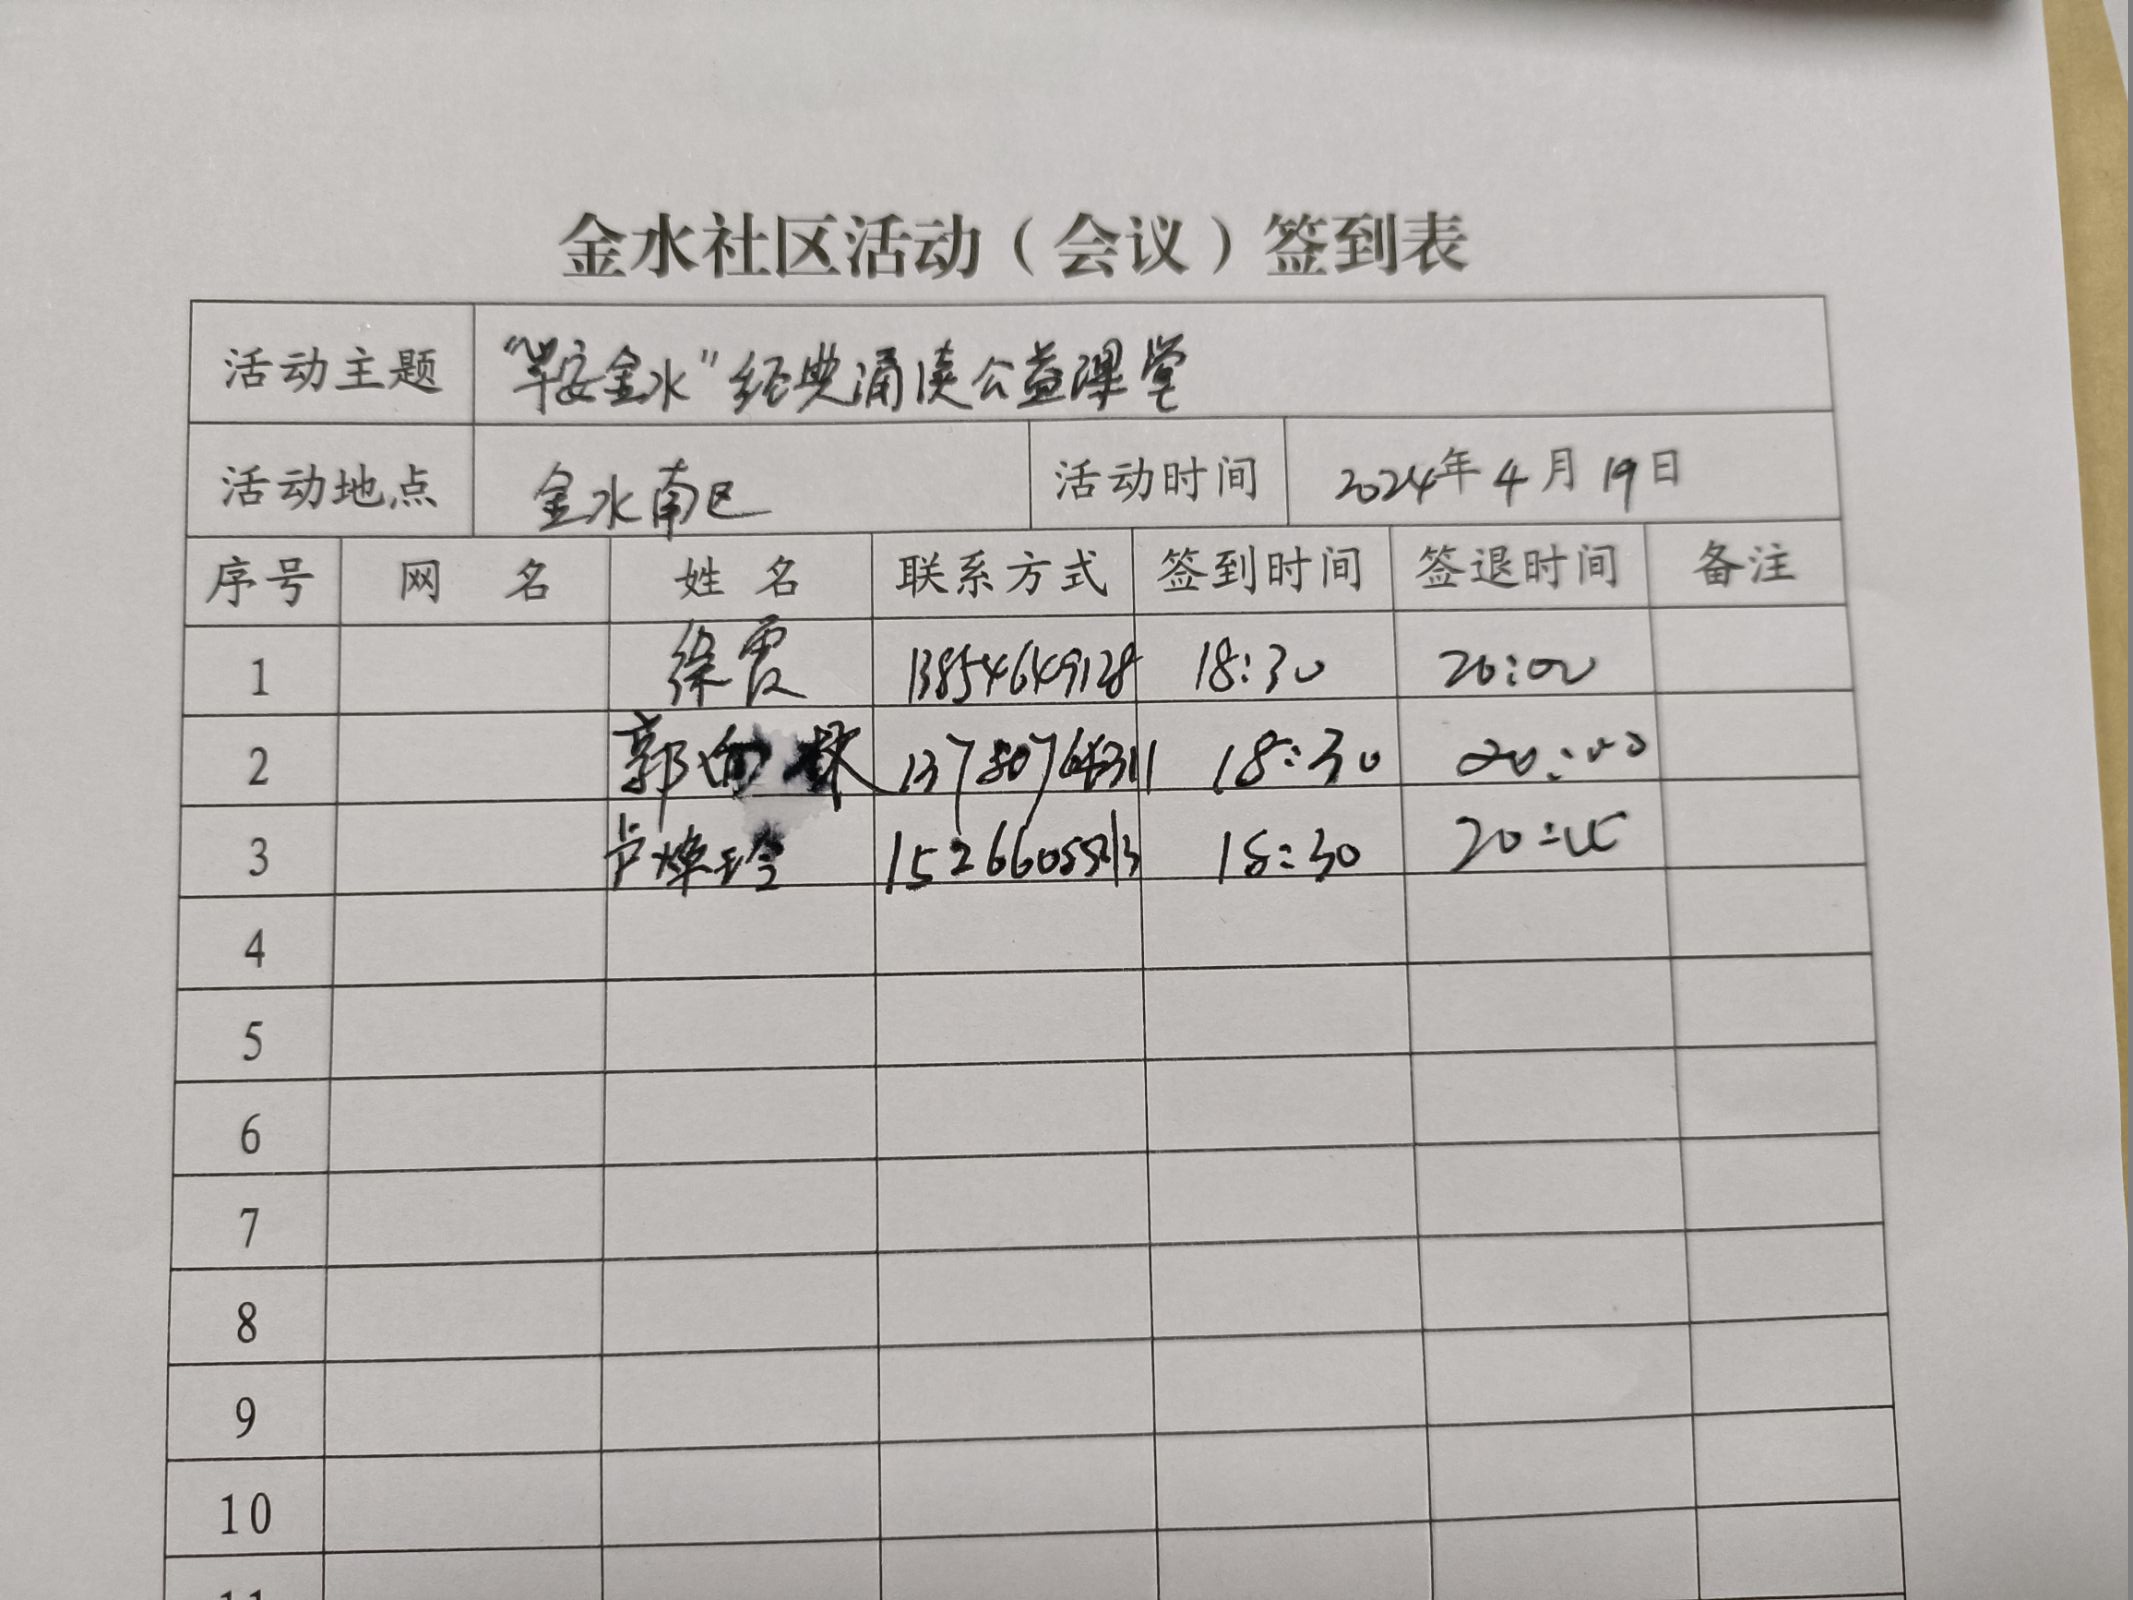 金水社区活动（会议）签到表
活动主题 “早安金水”经典诵读公益课堂
活动地点 金水南区 活动时间 2024年4月19日
序号 网名 姓名 联系方式 签到时间 签退时间 备注
1 徐霞 13854649128 18:30 20:00
2 郭 林 18:30 20:00
3 卢 玲 18:30 20:
4
5
6
7
8
9
10
11